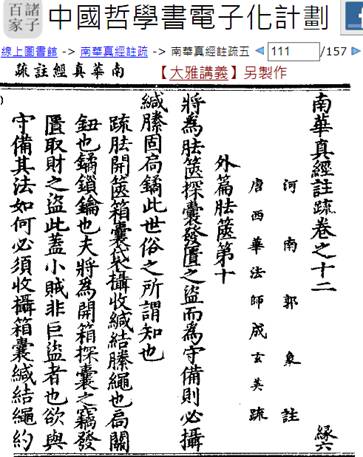 諸子百家
中國哲學書電子化計劃
線上圖書館 -> 南華真經註疏 -> 南華真經註疏五 111 /157
南華真經註疏
【大雅講義】另製作
南華真經註疏卷之十二 緣六
河南郭象註
唐西華法師成玄英疏
外篇胠篋第十
將為胠篋探囊發匱之盜而為守備則必攝
緘縢固扃鐍此世俗之所謂知也
疏胠開篋箱囊袋攝收緘結縢繩也扃關
鈕也鐍鎖鑰也夫將為開箱探囊之竊發
匱取財之盜此蓋小賊非巨盜者也欲與
守備其法如何必須收攝箱囊緘結繩約